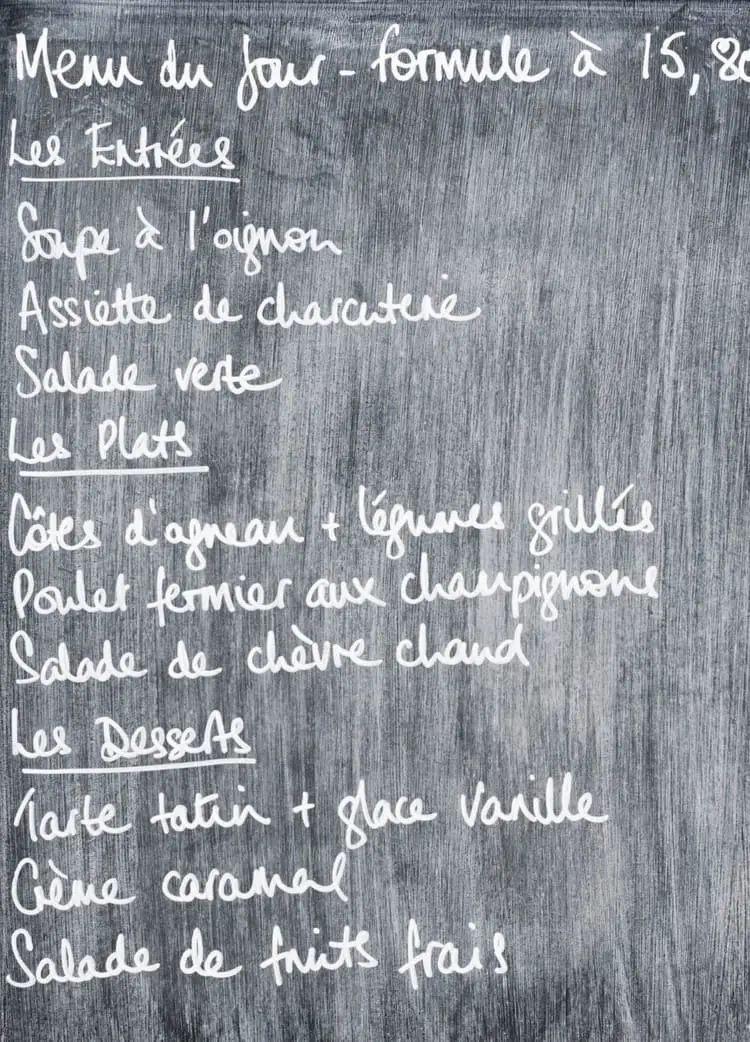 Menu du jour - formule à 15,80
Les Entrées
Soupe à l'oignon
Assiette de charcuterie
Salade verte
Les Plats
Côtes d'agneau + légumes grillés
Poulet fermier aux champignons
Salade de chèvre chaud
Les Desserts
Tarte tatin + glace vanille
Crème caramel
Salade de fruits frais